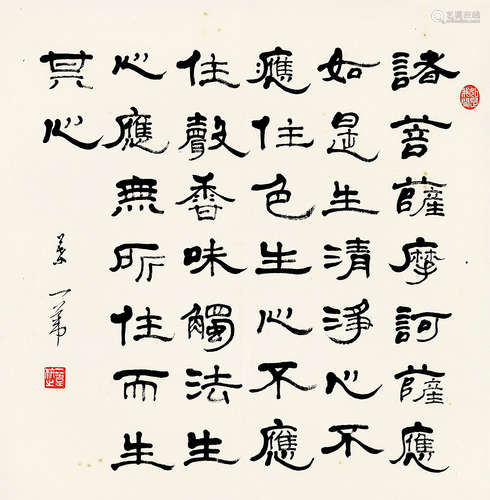 諸菩薩摩訶薩應
如是生清淨心不
應住色生心不應
住聲香味觸法生
心應無所住而生
其心
葉一葦